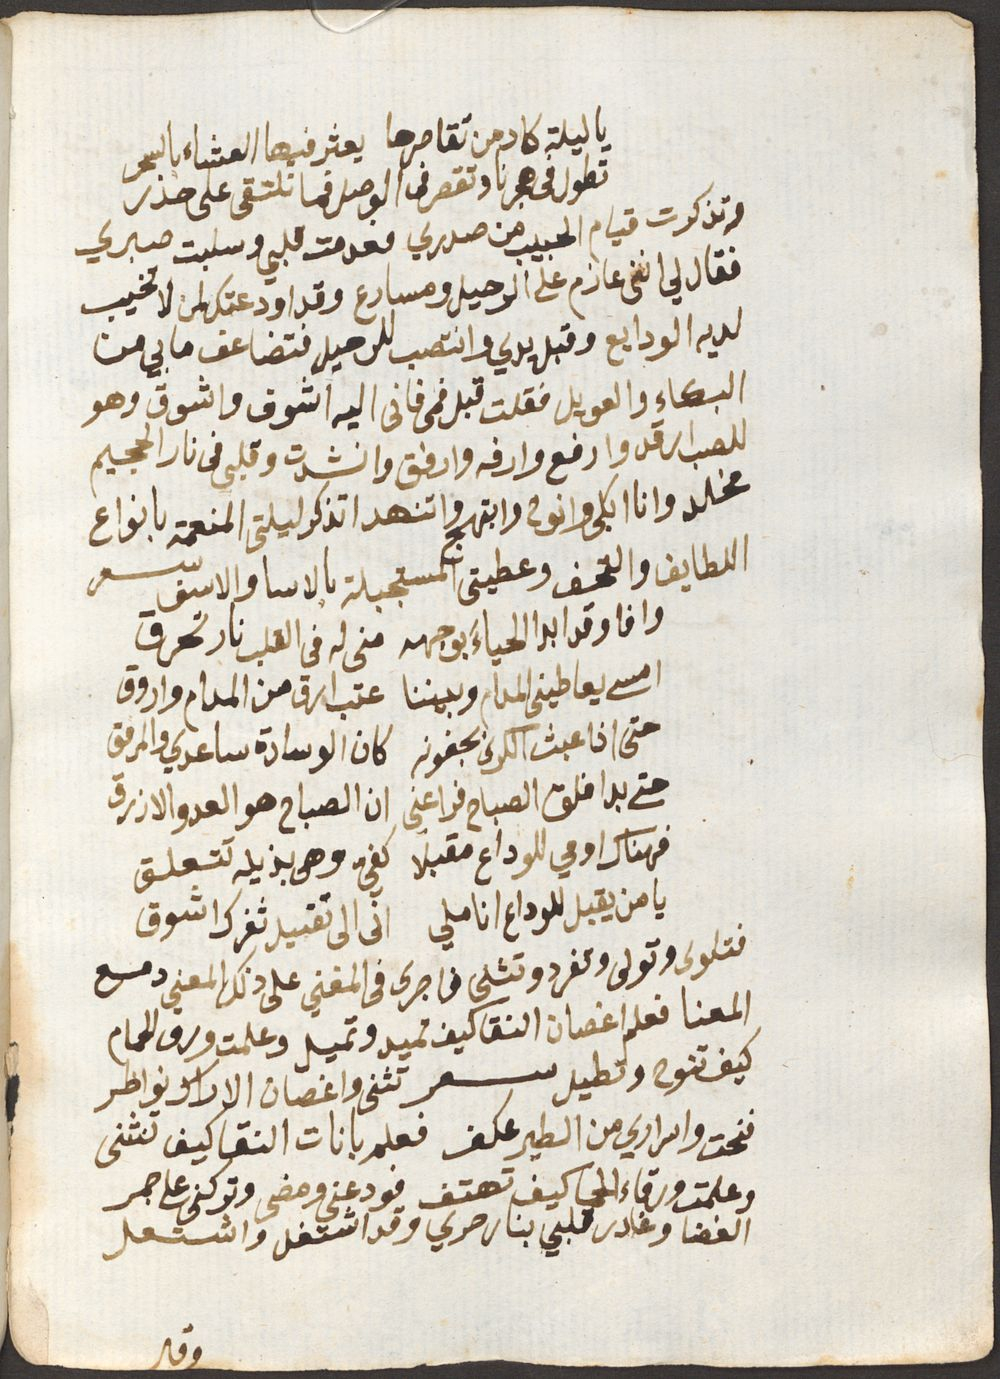 يا ليلة كاد من تقاصرها يعثر فيها العشاء بالسحر
تطول في هجرنا وتقصر في الوصل فما نلتقي على
وتذكرت قيام الحبيب من صدري فعدمت قلبي وسلبت صبري
فقال لي انني عازم على الرحيل ومسارع وقد اودعتك لمن لا تخيب
لديه الودايع وقبل يدي وانتصب للرحيل فتضاعف ما بي من
البكاء والعويل فقلت قبل فمي فاني اليه اشوف واشوق وهو
للصب ارقد وارفع وارفه وارفق وانشدت وقلبي في نار الجحيم
مخلد وانا ابكي وانوح واتنهد اتذكر ليلتي المنعمة بانواع
اللطايف والتحف وعطيتي المستجبلة بالاسا والاسف شعر
وافا وقد ابدا الحياء بوجهه مني له في القلب نار تحرق
امسى يعاطيني المدام وبيننا عتب ارق من المدام واروق
حتى اذا عبث الكرى بجفونه كان الوسادة ساعدي والمرفق
حتى بدا فلق الصباح فراعني ان الصباح هو العدو الازرق
فهناك اومي للوداع مقبلا كفي وهي بذيله تتعلق
يا من يقبل للوداع اناملي اني الى تقبيل ثغرك اشوق
فتلوى وتولى وتفرد وتثنى فاجرى في المغنى على ذلك المعنى دمع
المعنا فعلم اغصان النقا كيف تميد وتميل وعلمت ورق الحمام
كيف تنوح وتطيل شعر تثنى واغصان الاراك نواظر
فنحت واسراري من الطير عكف فعلم بانات النقا كيف تنثنى
وعلمت ورقاء الحمى كيف تهتف فودعني ومضى وتركني على جمر
الغضا وغادر قلبي بنار حري وقد اشتغل واشتعل
وقد